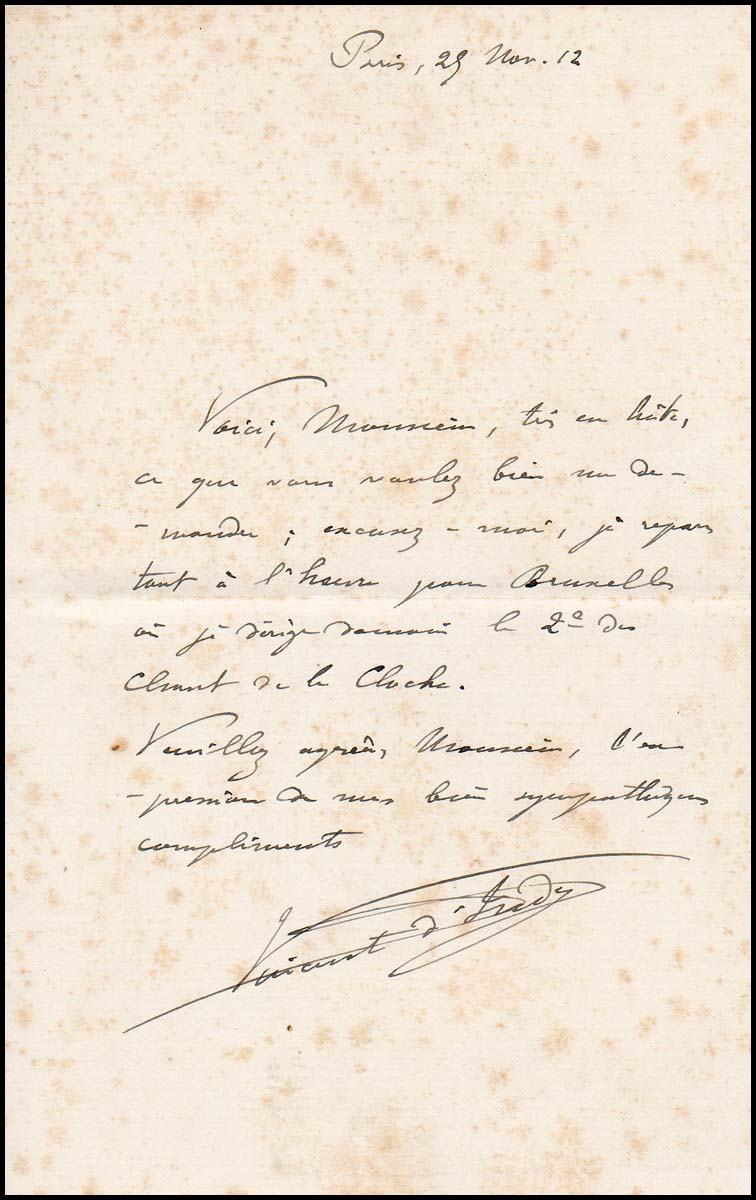 Paris, 29 Nov. 12
Voici, Monsieur, très en hâte,
ce que vous voulez bien me de-
-mander ; excusez-moi, je repars
tout à l'heure pour Bruxelles
où je dirige demain le 2e des
Chant de la Cloche.
Veuillez agréer, Monsieur, l'ex
-pression de mes bien sympathiques
compliments
Vincent d'Indy